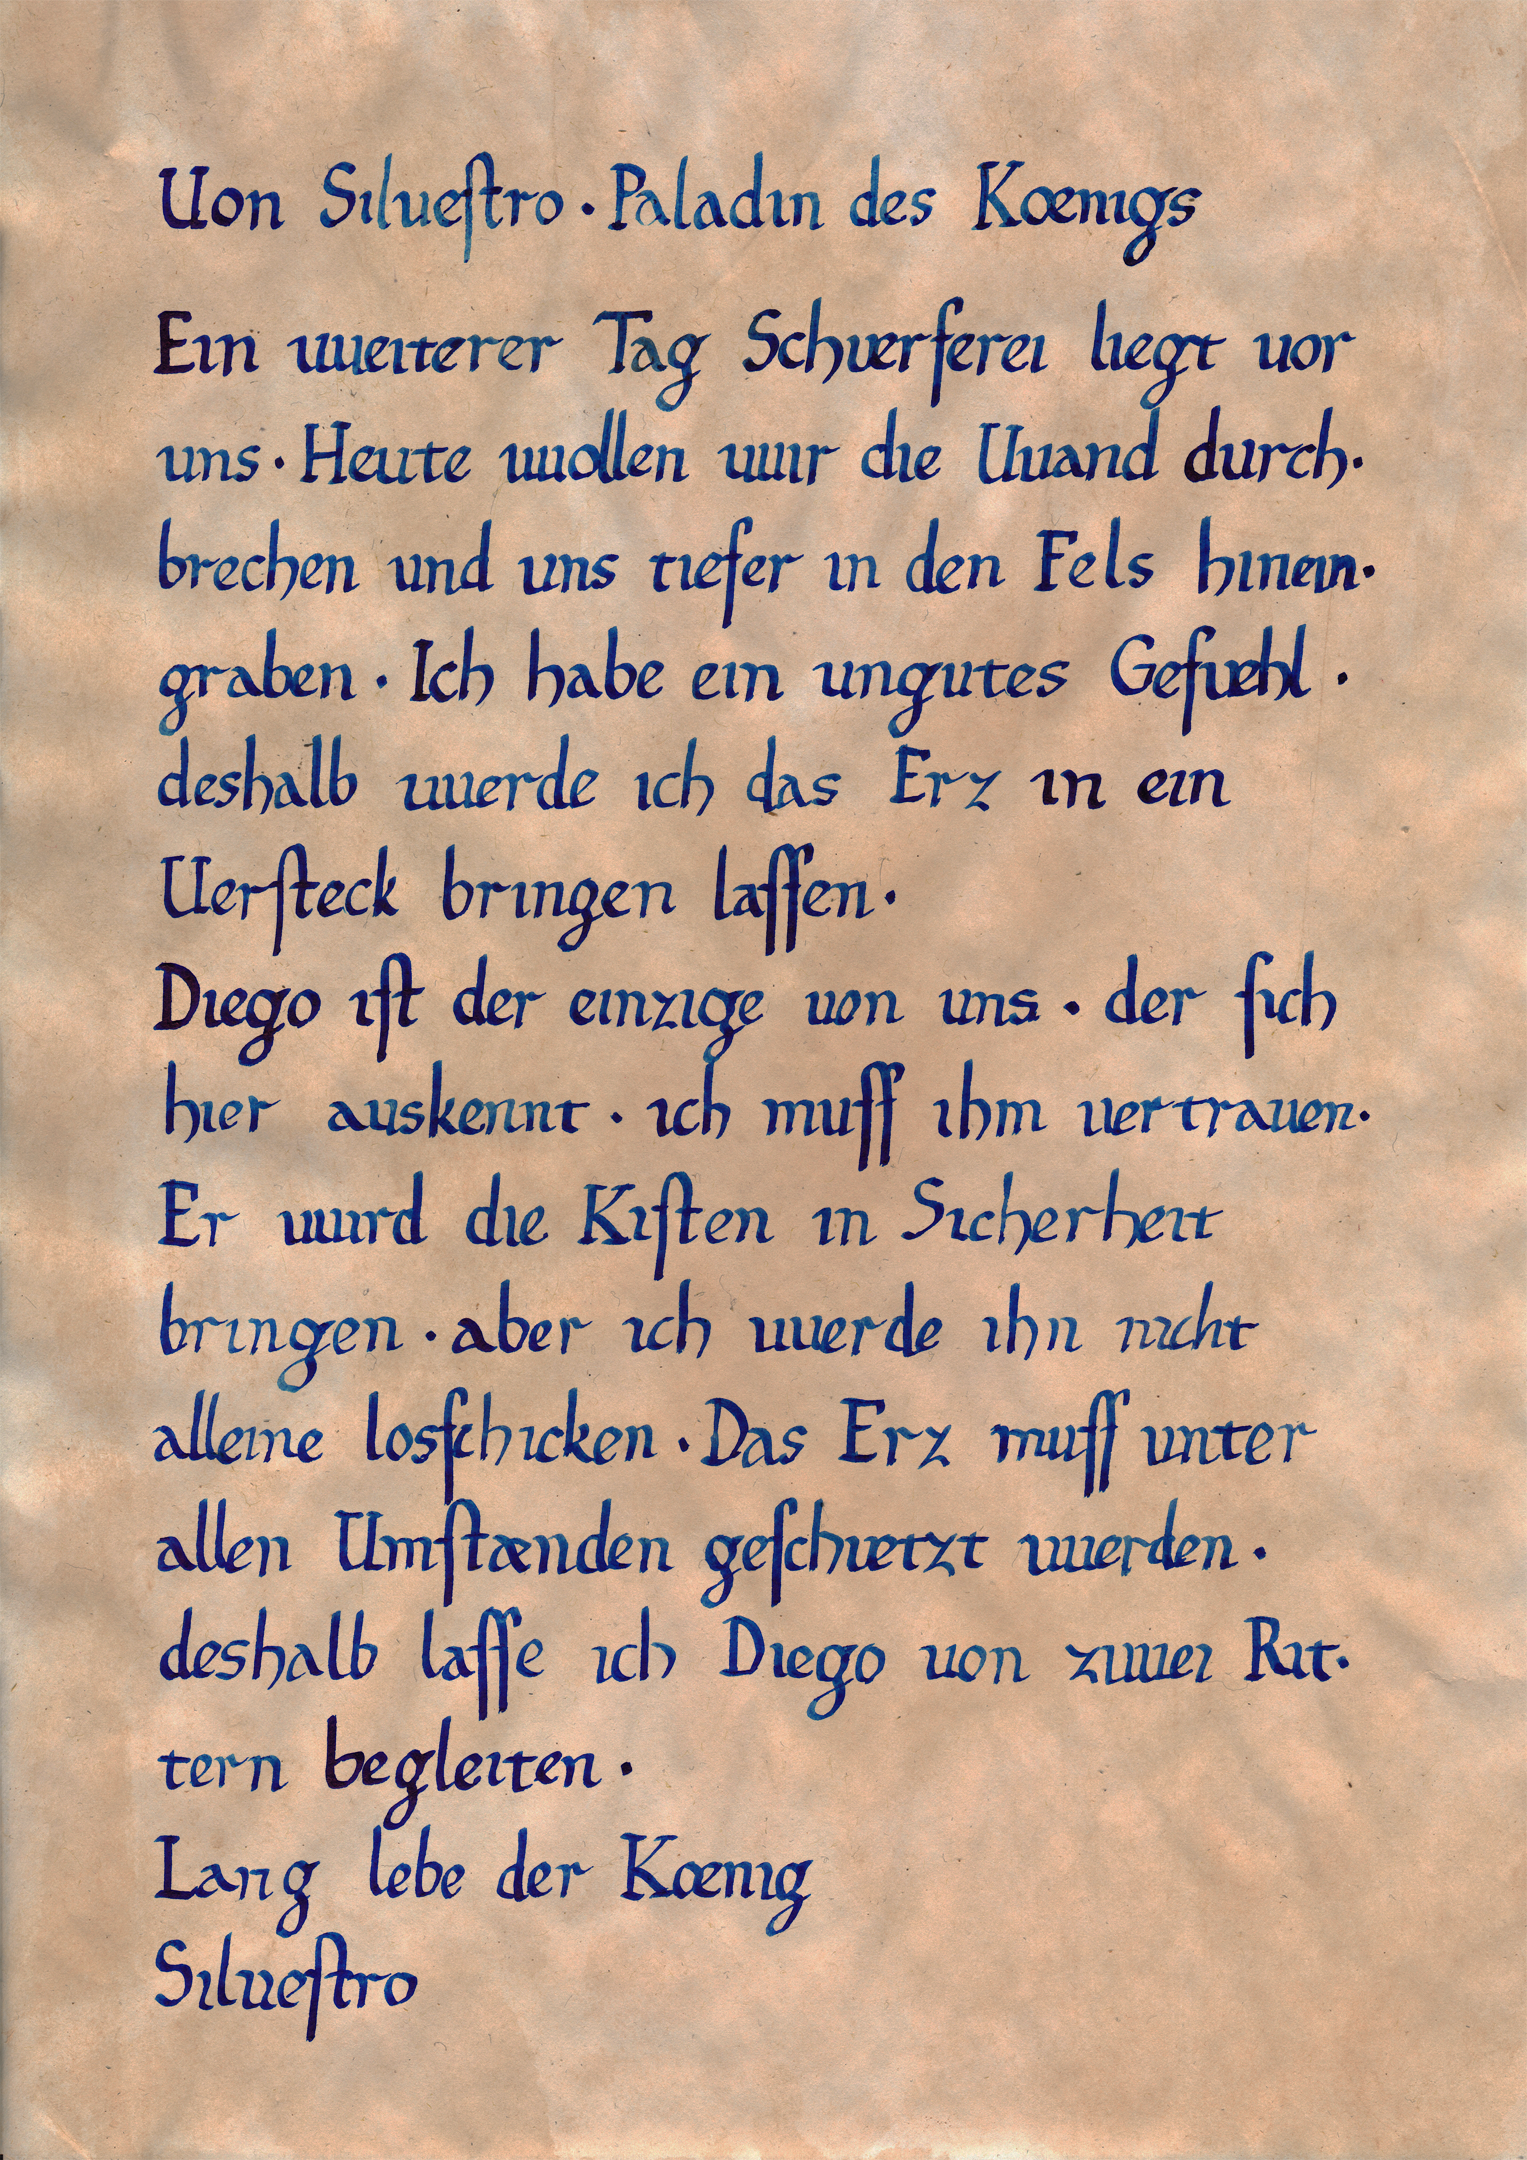 Uon Silueſtro · Paladin des Kœnigs
Ein uueiterer Tag Schuerferei liegt uor
uns · Heute uuollen uuir die Uuand durch·
brechen und uns tiefer in den Fels hinein·
graben · Ich habe ein ungutes Gefuehl ·
deshalb uuerde ich das Erz in ein
Uerſteck bringen laſſen ·
Diego iſt der einzige uon uns · der ſich
hier auskennt · ich muſſ ihm uertrauen ·
Er uuird die Kiſten in Sicherheit
bringen · aber ich uuerde ihn nicht
alleine losſchicken · Das Erz muſſ unter
allen Umſtænden geſchuetzt uuerden ·
deshalb laſſe ich Diego uon zuuei Rit·
tern begleiten ·
Lang lebe der Kœnig
Silueſtro